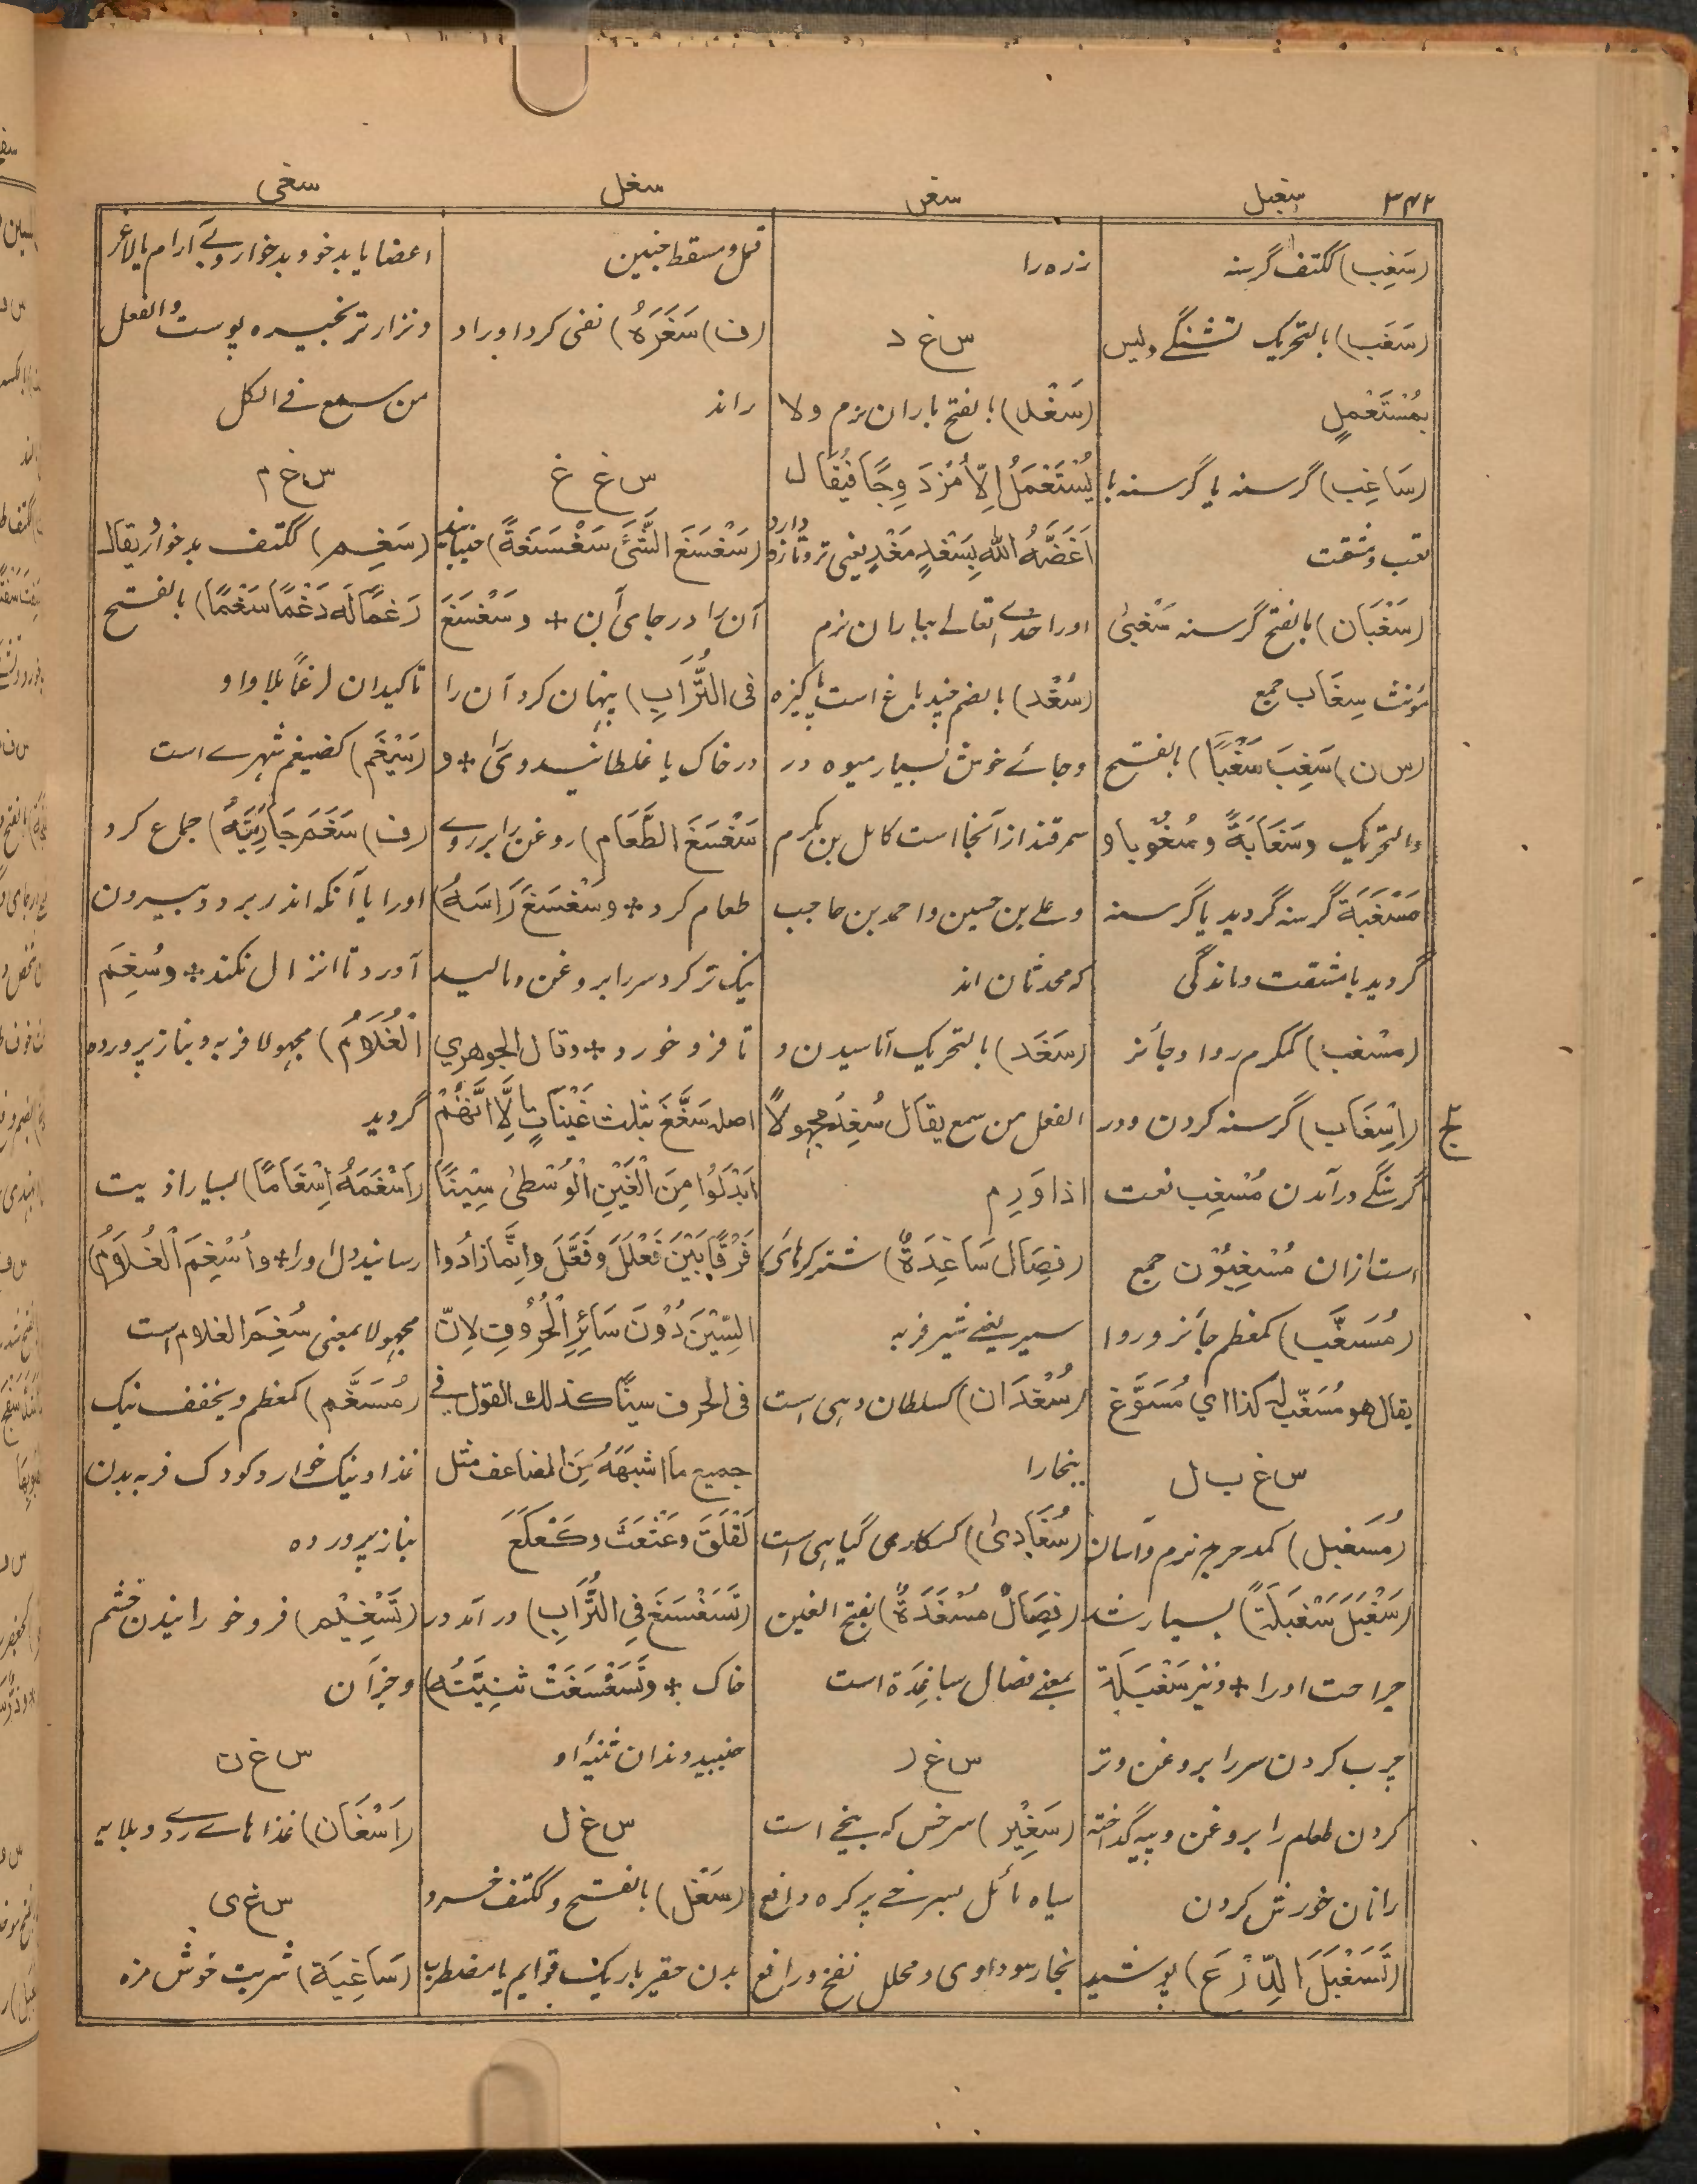 ۳۴۲
سغبل
سغن
سغل
سغی
(سَغِب) ککتف گرسنه
(سَغَب) بالتحریک تشنگے ولیس
بِمُسْتَعْمَلٍ
(سَاغِب) گرسنه یا گرسنه با
تعب ومشقت
(سَغْبَان) بالفتح گرسنه سَغْبیٰ
مؤنث سِغَاب جمع
(س ن) سَغِبَ سَغْبًا) بالفتح
والتحریک وسَغَابَةً وسُغُوبا و
مَسْغَبَة گرسنه گردید یا گرسنه
گردید با مشقت وماندگی
(مسْغب) کمکرم روا وجائز
(اِسْغَاب) گرسنه کردن ودر
گرسنگے درآمدن مُسْغِب نعت
است ازان مُسْغِبُوْن جمع
(مُسَغَّب) کمعظم جائز وروا
یقال هو مُسَغَّب له کذا اي مُسَوَّغ
س غ ب ل
(مُسَغبل) کمدحرج نرم وآسان
(سَغْبَلَ سَغْبَلَةً) بسیار شد
جراحت اورا + ونیز سَغْبَلَة
چرب کردن سر را بروغن وتر
کردن طعام را بروغن وپیه گداخته
رانان خورش کردن
(تَسَغْبَلَ الدِّرْعَ) پوشید
زره را
س غ د
(سَغْد) بالفتح باران نرم ولا
یُسْتَعْمَلُ اِلّا مُزْدَوِجًا فیُقَال
اَغَضَّهُ الله بِسَغْدٍ مَغْدٍ یعنی تروتازه دارد
اورا خدے تعالے بباران نرم
(سُغْد) بالضم چند باغ است پاکیزه
وجائے خوش بسیار میوه در
سمرقند ازآنجا است کامل بن مکرم
وعلے بن حسین واحمد بن حاجب
که محدثان اند
(سَغَد) بالتحریک آماسیدن و
الفعل من سمع یقال سُغِدَ مجهولاً
اذا وَرِم
(فِصَال سَاغِدَةٌ) شترکرهای
سیر یعنے شیر فربه
(سُغْدَان) کسلطان دهی است
ببخارا
(سُغَادیٰ) کسکاری گیاهی است
(فِصَالٌ مسْغَدَةٌ) بفتح الغین
بمعنے فصال ساغِدَة است
س غ ر
(سَغِیْر) سرخس که بیخے است
سیاه مائل بسرخے پر کره دافع
بخار سوداوی ومحلل نفخ ورافع
قمل ومسقط جنین
(ف) سَغَرَهُ) نفی کرد اورا و
راند
س غ غ
(سَغْسَغَ الشَّیَٔ سَغْسَغَةً) جنبانید
آن را در جای آن + وسَغْسَغَ
فی التُّرَابِ) پنهان کرد آن را
در خاک یا غلطانید وی را + و
سَغْسَغَ الطَّعَام) روغن را بر روے
طعام کرد + وسَغْسَغَ رَاسَهُ)
نیک تر کرد سر را بروغن ومالید
تا فرو خورد + وقال الجوهري
اصله سَغَّغَ بثلث غَیْنَاتٍ اِلَّا اَنَّهُمْ
اَبْدَلُوْا مِنَ الْغَیْنِ الْوُسْطیٰ سِیْنًا
فَرْقًا بَیْنَ فَعْلَلَ وَفَعَّلَ وانَّمَا زَادُوا
السِّیْنَ دُوْنَ سَائِرِ الْحُرُوْفِ لاِنّ
فی الحرف سینًا کذلك القول فی
جمیع ما اشبَهَهُ مِنَ المضاعف مثل
لَقْلَقَ وعَثْعَثَ وکَعْکَعَ
(تَسَغْسَغَ فِی التُّرَابِ) درآمد در
خاک + وتَسَغْسَغَتْ ثنِیَّتُه)
جنبید دندان ثنیهٔ او
س غ ل
(سَغْل) بالفتح وککتف خرد
بدن حقیر باریک قوایم یا مضطرب
اعضا یا بدخو وبدخوار وبے آرام یا لاغر
ونزار ترنجیده پوست والفعل
من سمع فے الکل
س غ م
(سَغِم) ککتف بدخوار ویقال
رَغمًا لَه دَغْمًا سَغْمًا) بالفتح
تاکیدان لرغمًا بلا واو
(سَیْغَم) کضیغم شهرے است
(ف) سَغَمَ جَارِیَتَهُ) جماع کرد
اورا یا آنکه اندر برد وبیرون
آورد تا انزال نکند + وسُغِمَ
الْغُلَامُ) مجهولا فربه وبناز پرورده
گردید
(اَسْغَمَهُ اِسْغَامًا) بسیار اذیت
رسانید دل اورا + واُسْغِمَ الْغُلَامُ)
مجهولا بمعنی سُغِمَ الغلام است
(مُسَغَّم) کمعظم ویخفف نیک
غذا ونیک خوار وکودک فربه بدن
بناز پرورده
(تَسْغِیْم) فرو خورانیدن خشم
وجز آن
س غ ن
(اَسْغَان) غذاهاے ردے وبلایه
س غ ی
(سَاغِیَة) شربت خوش مزه